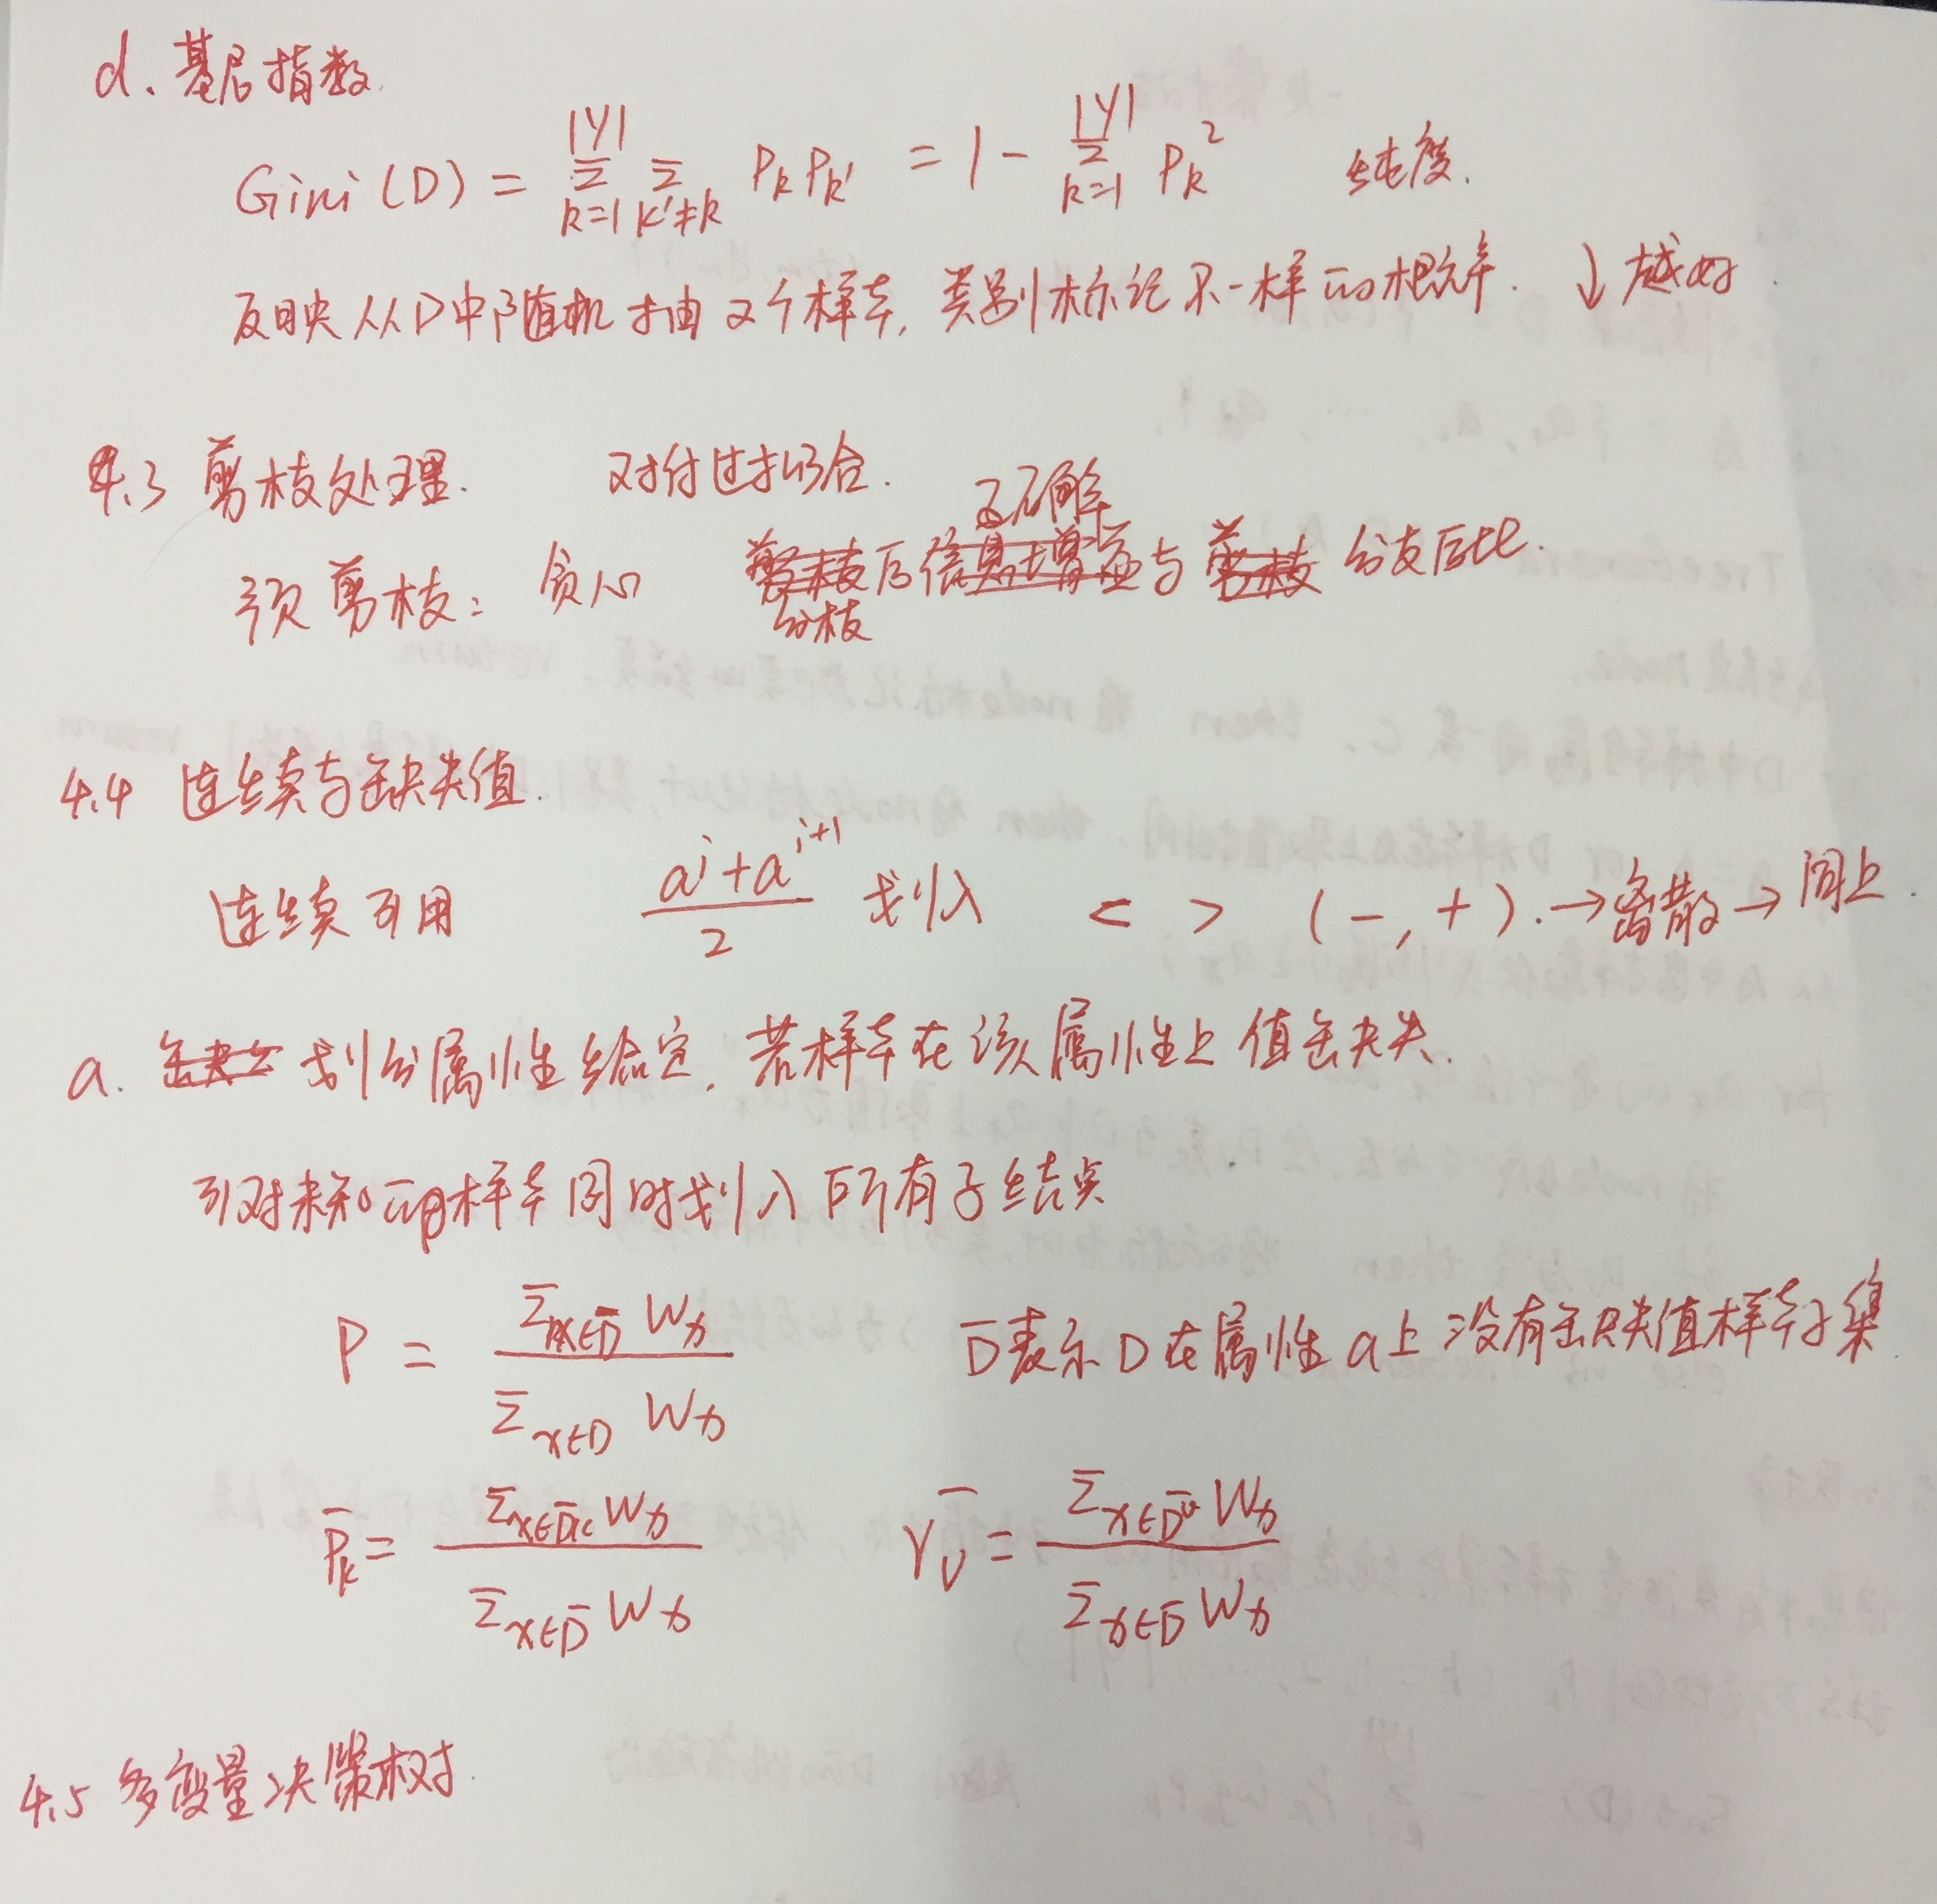 d. 基尼指数.
Gini(D) = \sum_{k=1}^{|y|} \sum_{k'≠k} P_k P_{k'} = 1 - \sum_{k=1}^{|y|} P_k^2 纯度.
反映从D中随机抽2个样本, 类别标记不一样的概率. ↓越好.
4.3 剪枝处理. 对付过拟合.
正确解
预剪枝: 贪心 剪枝后信息增益与剪枝 分支后比.
分枝
4.4 连续与缺失值.
连续可用 \frac{a^i + a^{i+1}}{2} 划入 < > (-, +). → 离散 → 同上.
a. 缺失 划分属性给定, 若样本在该属性上值缺失.
可对未知的样本同时划入所有子结点
P = \frac{\sum_{x∈\bar{D}} W_x}{\sum_{x∈D} W_x} \bar{D}表示D在属性a上没有缺失值样本子集
\bar{P_k} = \frac{\sum_{x∈\bar{D}_k} W_x}{\sum_{x∈\bar{D}} W_x} \bar{r_v} = \frac{\sum_{x∈\bar{D}^v} W_x}{\sum_{x∈\bar{D}} W_x}
4.5 多变量决策树.